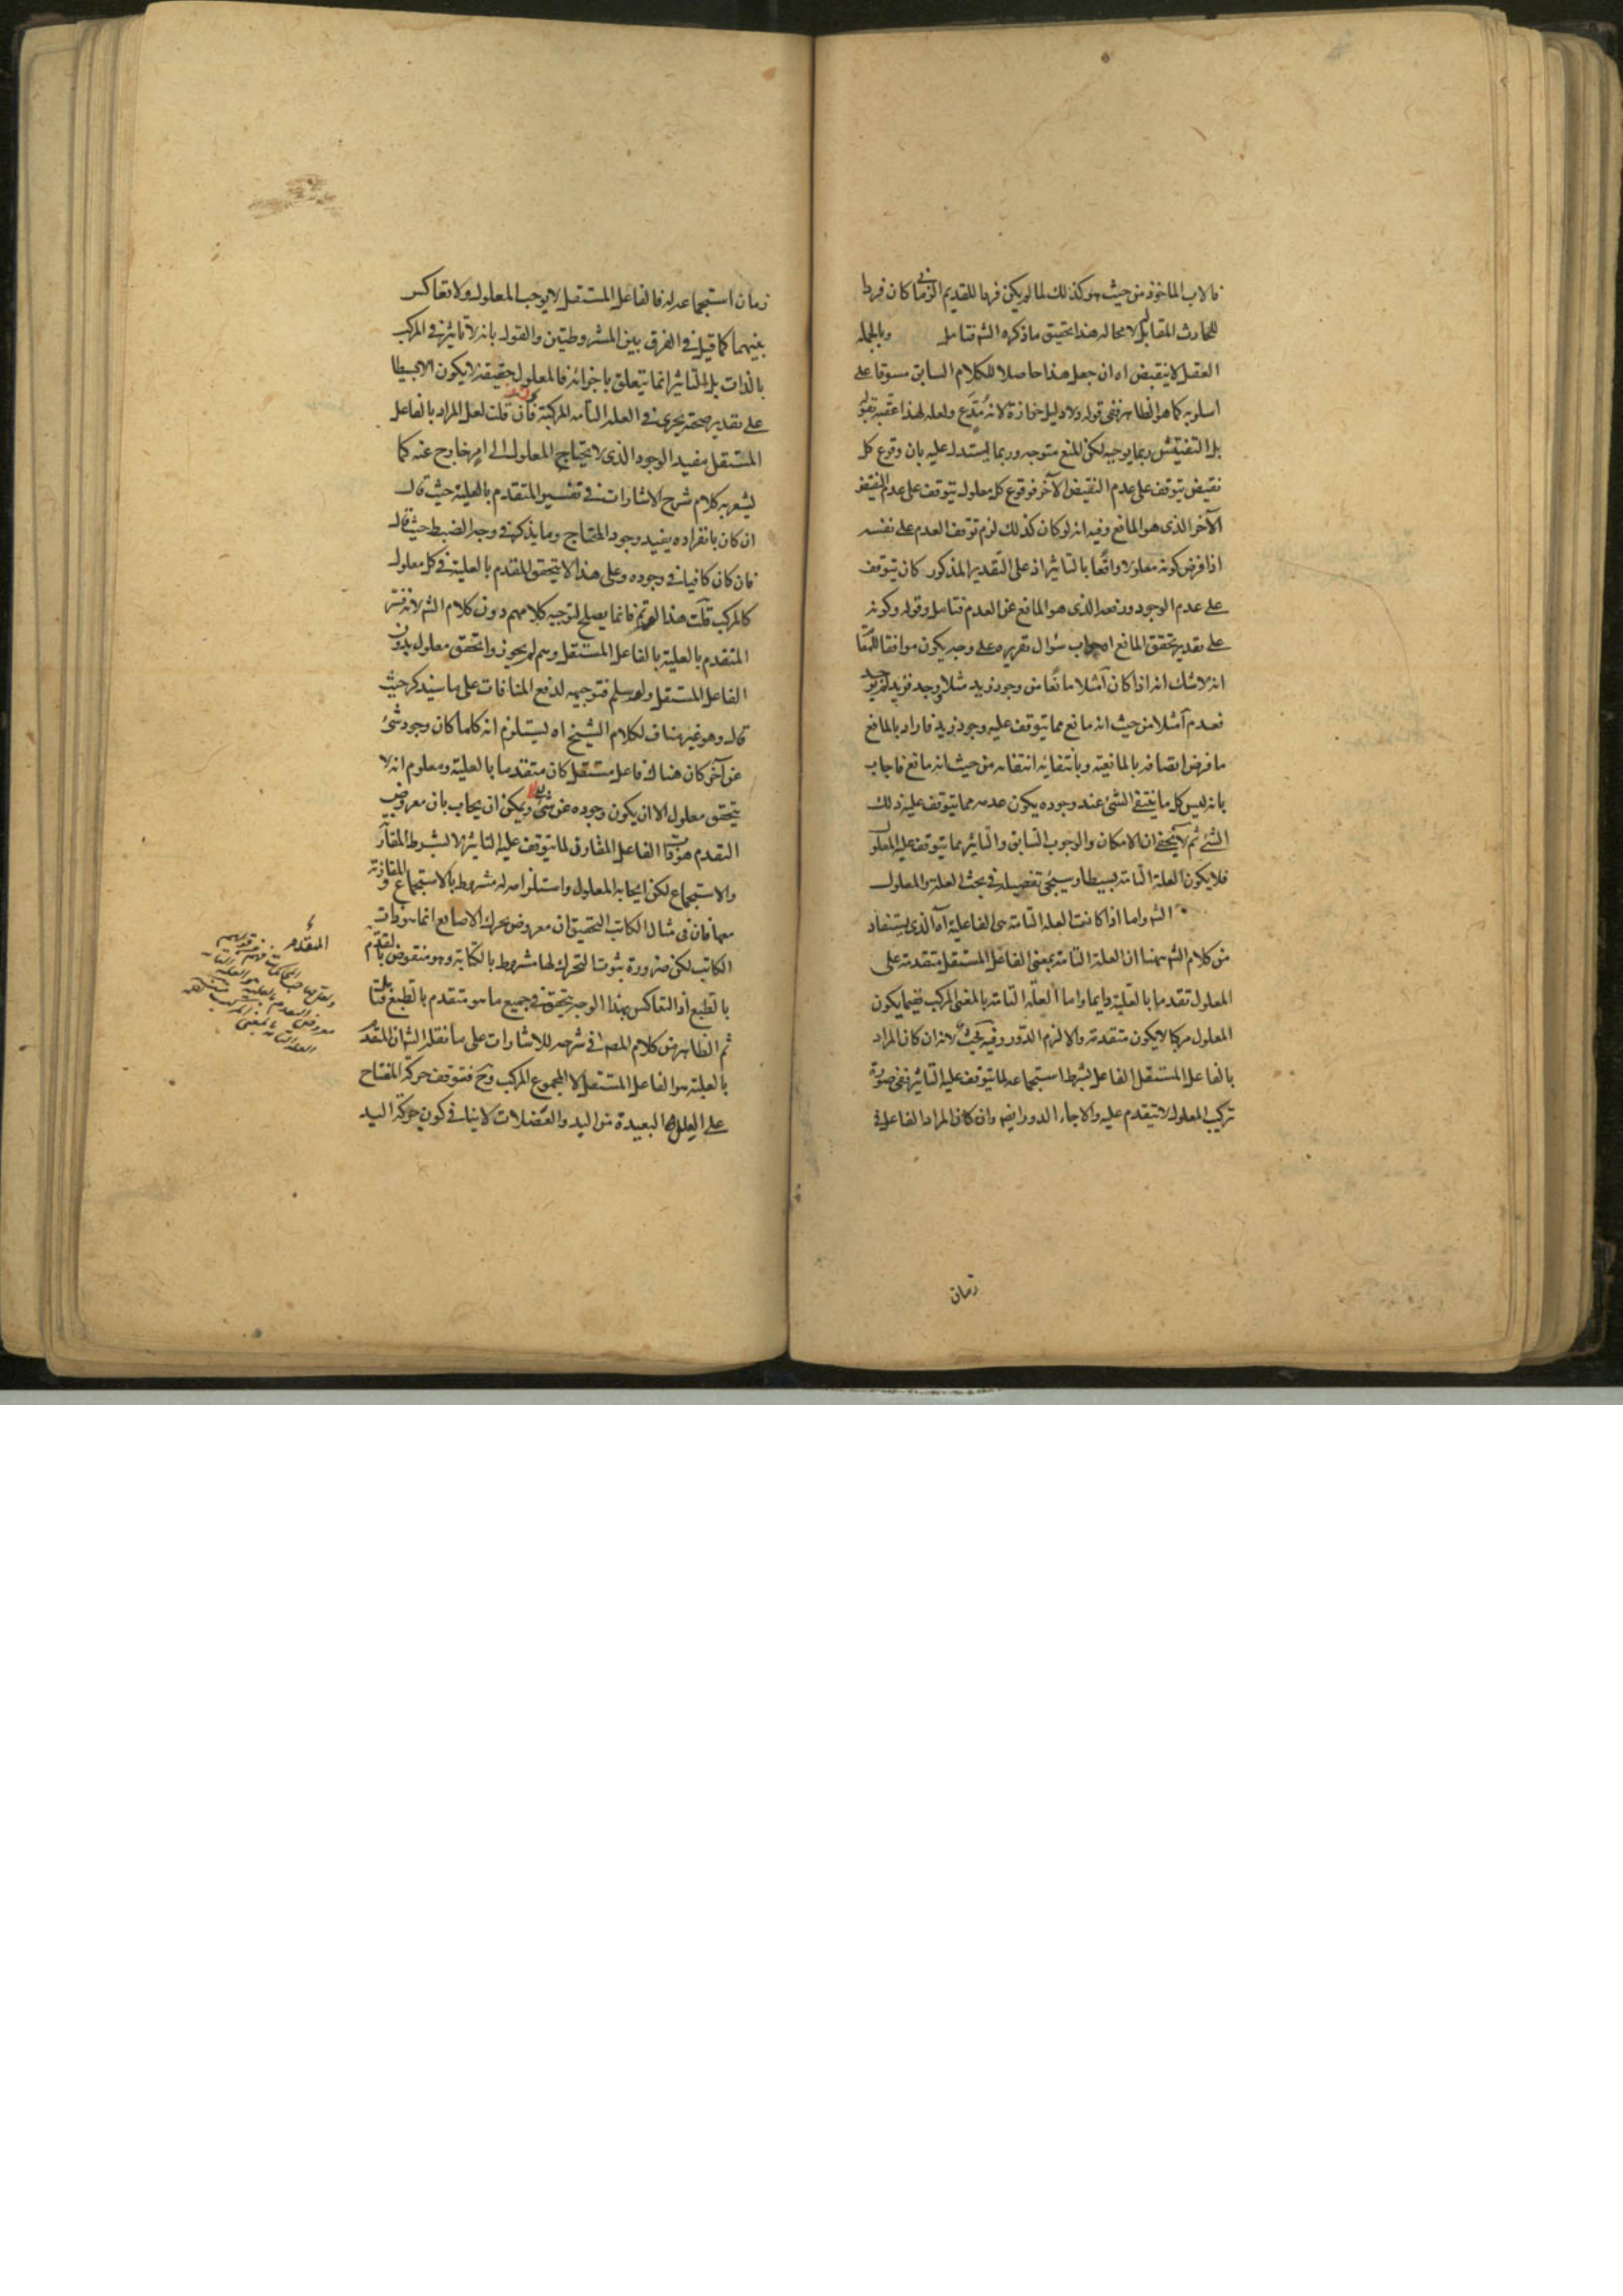 فالاب الماخوذ من حيث هو كذلك لما لم يكن فردا للقديم الزماني كان فردا
للحادث المقابل له لا محاله هذا تحقيق ما ذكره الشه فتامل وبالجمله
العقل لا ينقبض اه ان جعل هذا حاصلا للكلام السابق مسوقا على
اسلوبه كما هو الظاهر ففي قوله ولا دليل حزازة لانه مدع ولعله لهذا عقبه بقوله
بل التفتيش ربما يوجبه لكن المنع متوجه وربما يستدل عليه بان وقوع كل
نقيض يتوقف على عدم النقيض الآخر فوقوع كل معلول يتوقف على عدم النقيض
الآخر الذى هو المانع وفيه انه لو كان كذلك لزم توقف العدم على نفسه
اذا فرض كونه معلولا واقعا بالتاثير اذ على التقدير المذكور كان يتوقف
على عدم الوجود ورفعه الذى هو المانع عن العدم فتامل وقوله وكونه
على تقدير تحقق المانع اه جواب سؤال تقريره على وجه يكون موافقا للمقا
انه لا شك انه اذا كان آ مثلا مانعا من وجود زيد مثلا وجد فزيد لم يوجد
فعدم آ مثلا من حيث انه مانع مما يتوقف عليه وجود زيد فاراد بالمانع
ما فرض اتصافه بالمانعية وبانتفائه انتفائه من حيث انه مانع فاجاب
بانه ليس كل ما ينتفي الشئ عند وجوده يكون عدمه مما يتوقف عليه ذلك
الشئ ثم لا يخفى ان الامكان والوجوب السابق والتاثير مما يتوقف عليه المعلول
فلا يكون العلة التامة بسيطا وسيجئ تفصيله في بحث العلة والمعلول
الشه واما اذا كانت العلة التامة هى الفاعلية اه الذى يستفاد
من كلام الشه ههنا ان العلة التامة بمعنى الفاعل المستقل متقدمة على
المعلول تقدما بالعلية دايما واما العلة التامة بالمعنى المركب ففيما يكون
المعلول مركبا لا يكون متقدمة والا لزم الدور وفيه بحث لانه ان كان المراد
بالفاعل المستقل الفاعل بشرط استجماعه لما يتوقف عليه التاثير ففي صورة
تركيب المعلول لا يتقدم عليه والا جاء الدور ايضا وان كان المراد الفاعل في
زمان
زمان استجماعه له فالفاعل المستقل لا يوجب المعلول ولا تعاكس
بينهما كما قيل في الفرق بين المشروطيتين والقول بانه لا تاثير في المركب
بالذات بل التاثير انما يتعلق باجزائه فالمعلول حقيقة لا يكون الا بسيطا
على تقدير صحته يجرى في العلة التامه المركبة فان قلت لعل المراد بالفاعل
المستقل مفيد الوجود الذى لا يحتاج المعلول الى امر خارج عنه كما
يشعر به كلام شرح الاشارات في تفسير المتقدم بالعلية حيث قال
ان كان بانفراده يفيد وجود المحتاج وما يذكره في وجه الضبط حيث قال
فان كان كافيا في وجوده وعلى هذا لا يتحقق المقدم بالعلية في كل معلول
كالمركب قلت هذا لو تم فانما يصلح لتوجيه كلامهم دون كلام الشه لانه فسر
المتقدم بالعلية بالفاعل المستقل وهم لم يجوزوا تحقق معلول بدون
الفاعل المستقل ولو سلم فتوجيهه لدفع المنافات على ما سيذكر حيث
قال وهو غير مناف لكلام الشيخ اه يستلزم انه كلما كان وجود شئ
عن آخر كان هناك فاعل مستقل كان متقدما بالعلية ومعلوم انه لا
يتحقق معلول الا ان يكون وجوده عن شئ ويمكن ان يجاب بان معروض
التقدم هو ذات الفاعل المقارن لما يتوقف عليه التاثير لا بشرط المقارنة
والاستجماع لكن ايجابه المعلول واستلزامه له مشروط بالاستجماع والمقارنة
معها فان في مثال الكاتب التحقيق ان معروض تحرك الاصابع انما هو ذات
الكاتب لكن ضرورة ثبوت التحرك لها مشروط بالكتابة وهو منقوض بالتقدم
بالطبع اذ التعاكس بهذا الوجه يتحقق في جميع ما هو متقدم بالطبع فتامل
ثم الظاهر من كلام المصه في شرحه للاشارات على ما نقله الشه ان المتقدم
بالعلية هو الفاعل المستقل لا المجموع المركب وح فتوقف حركة المفتاح
على العلل البعيدة من اليد والعضلات لا ينافي كون حركة اليد
المتقدم